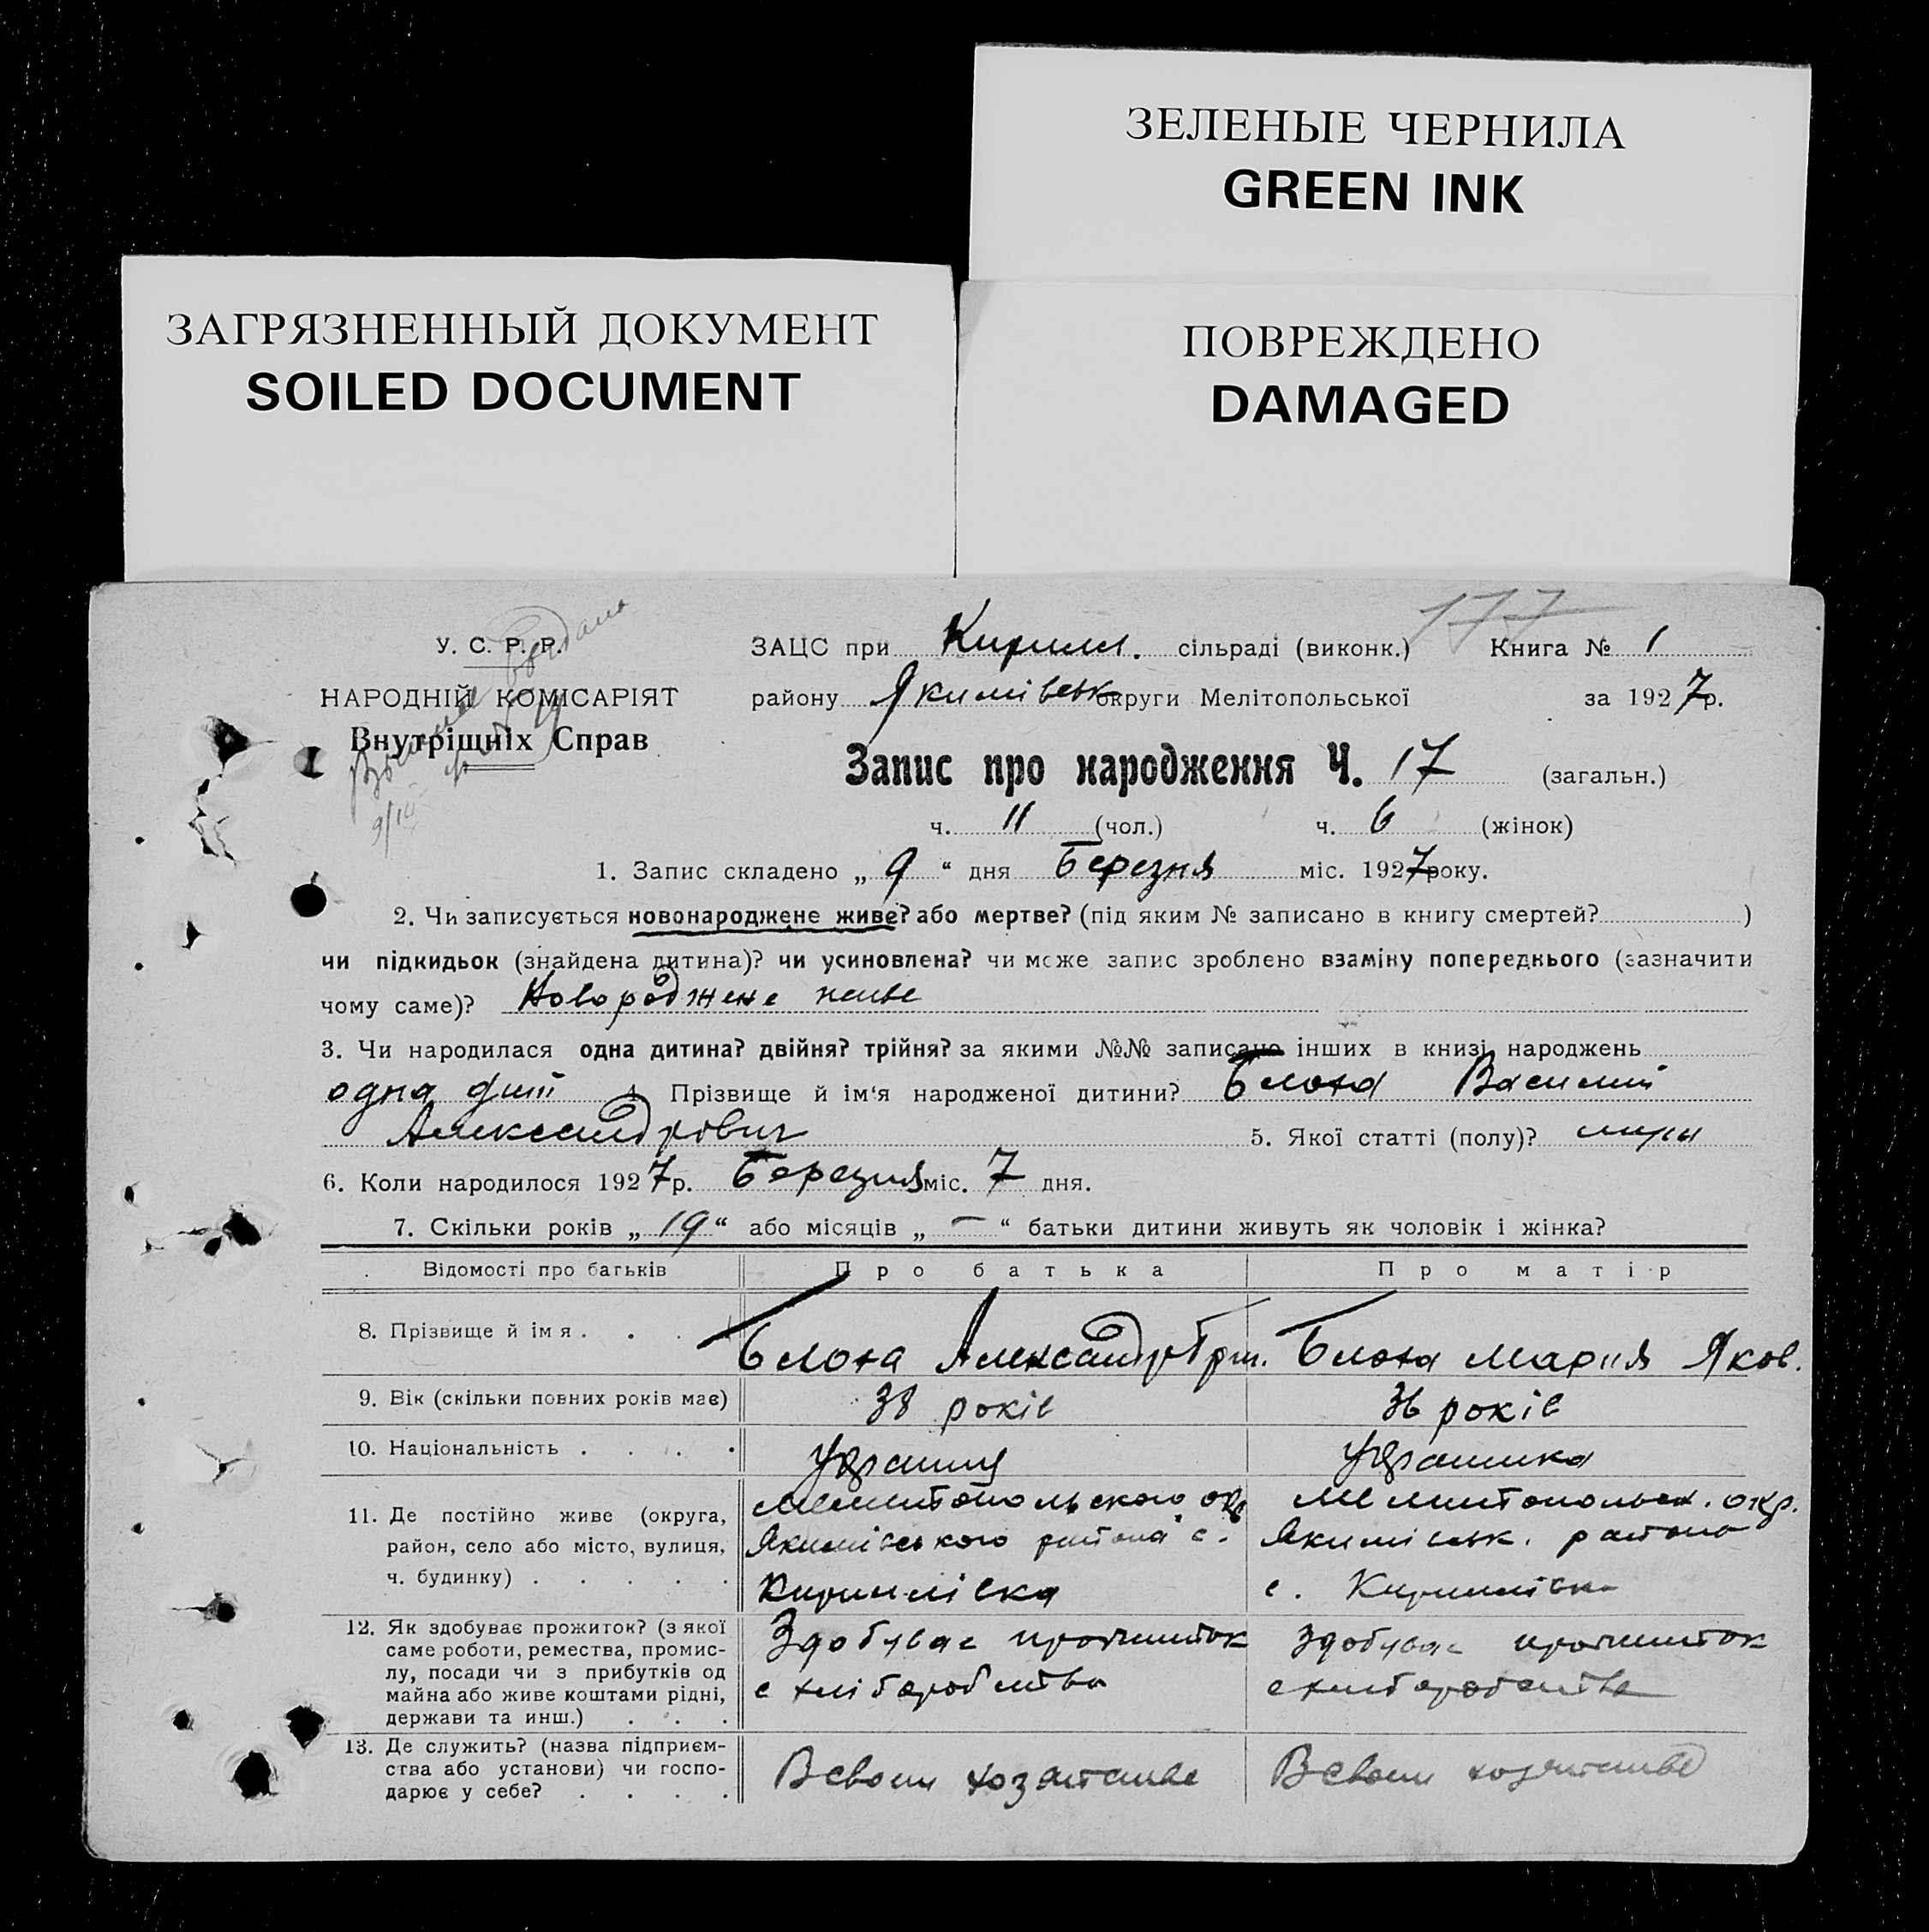 ЗЕЛЕНЫЕ ЧЕРНИЛА
GREEN INK
ЗАГРЯЗНЕННЫЙ ДОКУМЕНТ
SOILED DOCUMENT
ПОВРЕЖДЕНО
DAMAGED
177
У. С. Р. Р.
НАРОДНІЙ КОМІСАРІЯТ
Внутріщніх Справ
9/III
ЗАЦС при Кирил. сільраді (виконк.) Книга № 1
району Якимівськ округи Мелітопольської за 1927 р.
Запис про народження Ч. 17 (загальн.)
ч. 11 (чол.) ч. 6 (жінок)
1. Запис складено „ 9 “ дня Березня міс. 1927 року.
2. Чи записується новонароджене живе? або мертве? (під яким № записано в книгу смертей? )
чи підкидьок (знайдена дитина)? чи усиновлена? чи може запис зроблено взаміну попереднього (зазначити
чому саме)? Новороджене живе
3. Чи народилася одна дитина? двійня? трійня? за якими №№ записано інших в книзі народжень
одна 4. Прізвище й ім‘я народженої дитини? Блоха Василий
Александрович 5. Якої статті (полу)?
6. Коли народилося 1927 р. Березня міс. 7 дня.
7. Скільки років „ 19 “ або місяців „ — “ батьки дитини живуть як чоловік і жінка?
Відомості про батьків Про батька Про матір
8. Прізвище й ім я . . . Блоха Александр Гри. Блоха Мария Яков.
9. Вік (скільки повних років має) 38 років 36 років
10. Національність . . . . Украинка
11. Де постійно живе (округа, район, село або місто, вулиця, ч. будинку) . . . . .
Мелитопольского окр Якимівського района с. Кирилівка
Мелитопольск. окр. Якимівськ. района с. Кирилівка
12. Як здобуває прожиток? (з якої саме роботи, ремества, промислу, посади чи з прибутків од майна або живе коштами рідні, держави та инш.) . . .
Здобуває прожиток с хліборобства
Здобуває прожиток с хлиборобства
13. Де служить? (назва підприємства або установи) чи господарює у себе? . . . .
В своим хозяйстве
В своим хозяйстве